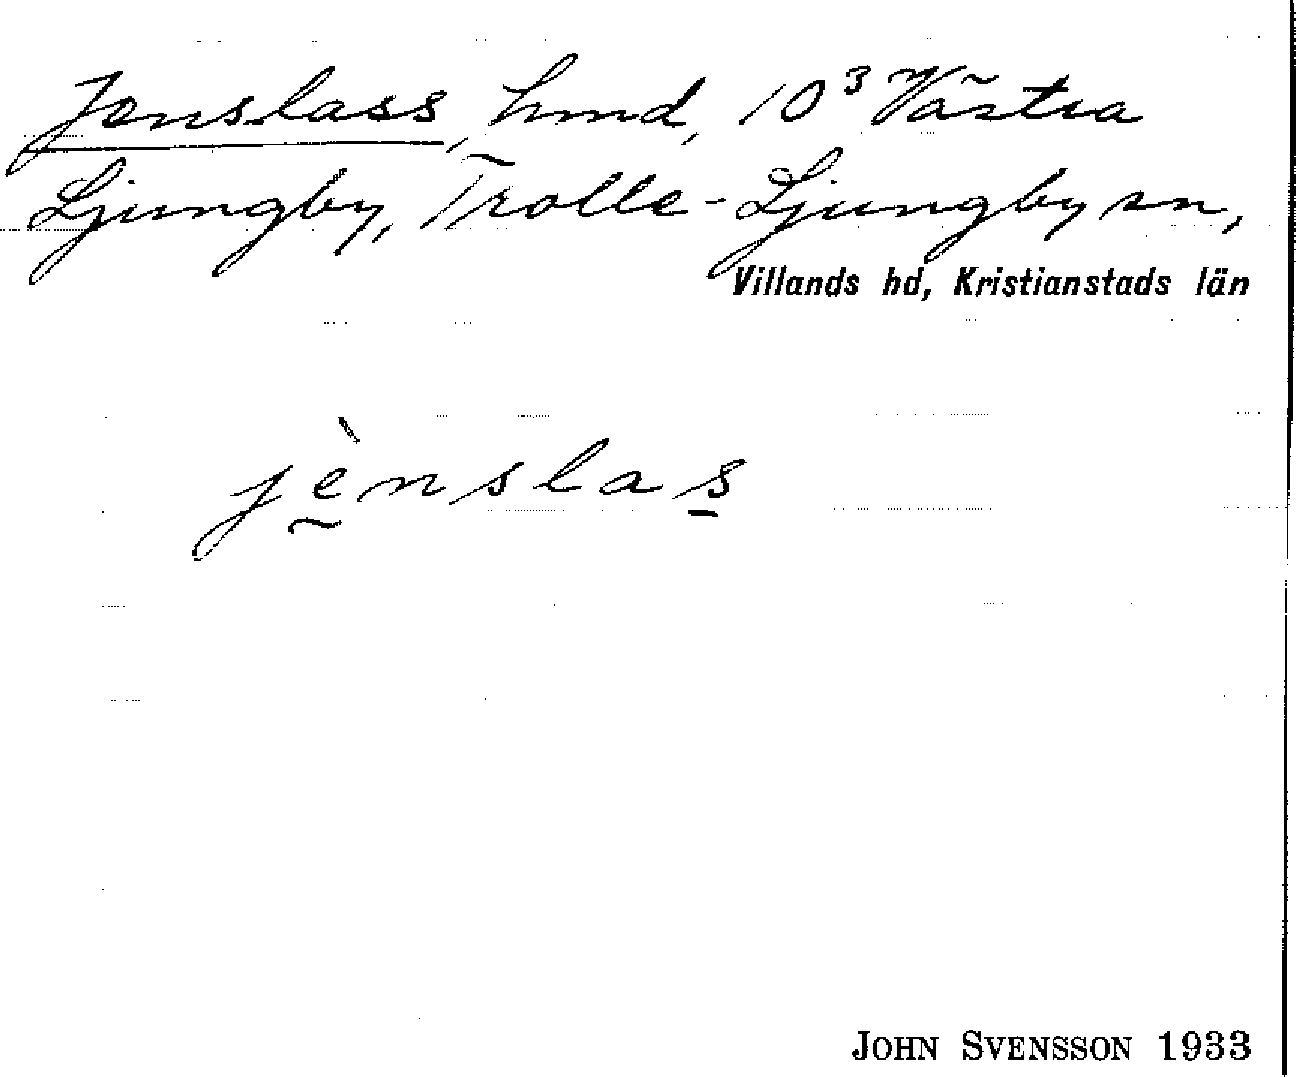 Jenslass, hmd, 10³ Västra
Ljungby, Trolle-Ljungby sn,
Villands hd, Kristianstads län
jènslas
JOHN SVENSSON 1933